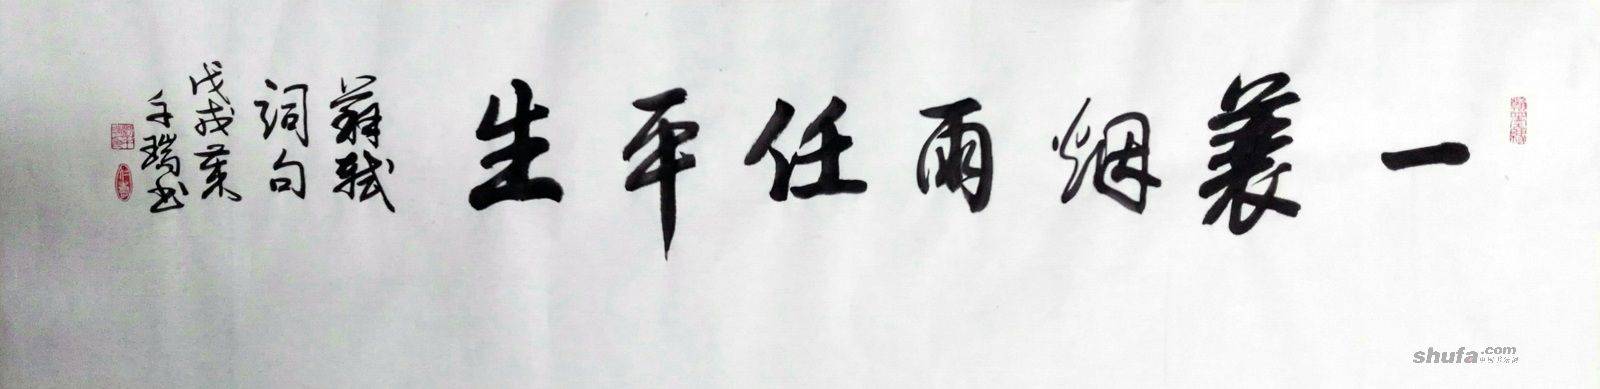 一蓑烟雨任平生
苏轼
詞句
戊戌葉
千瑞书
shufa.com